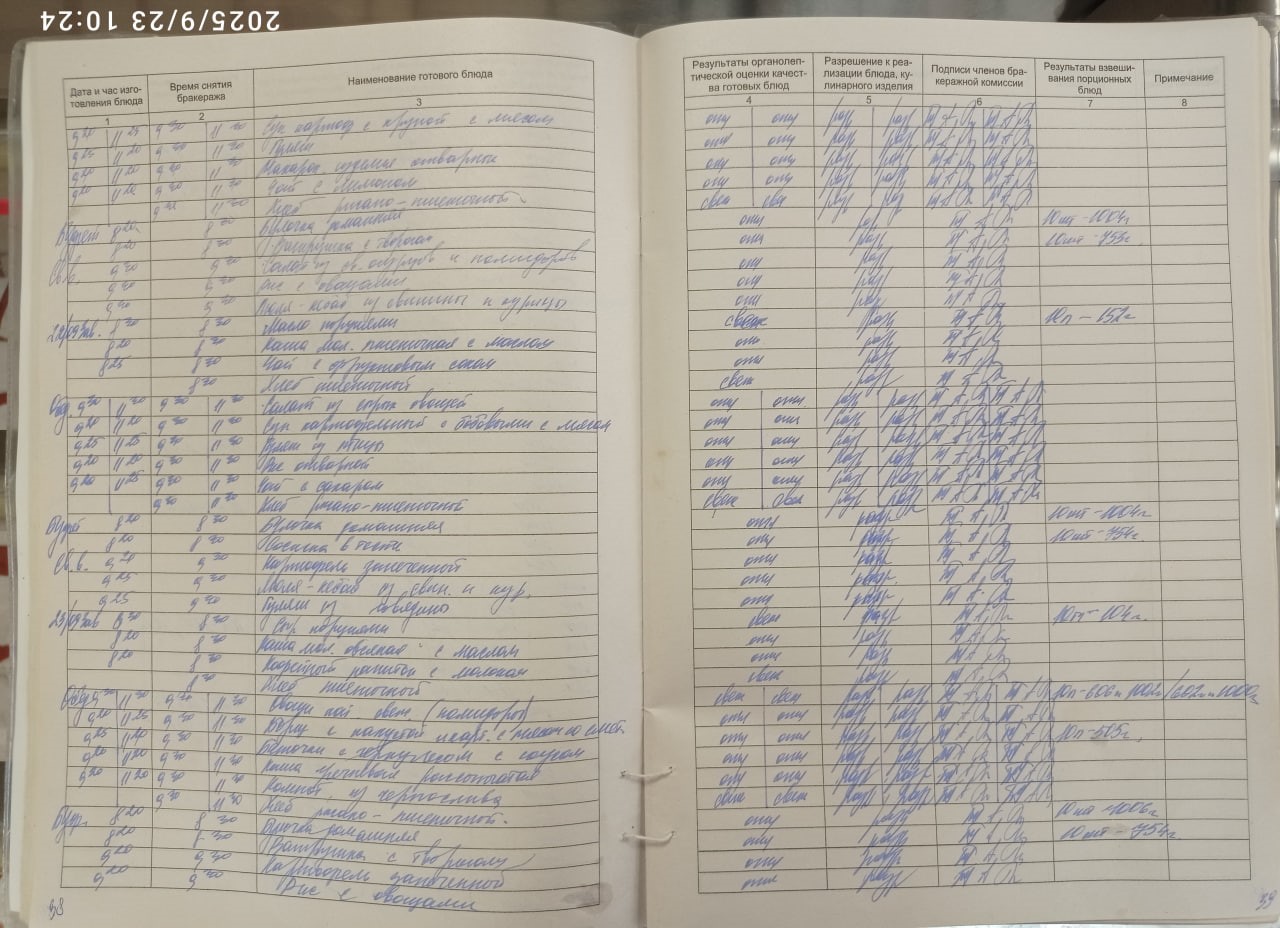 2025/9/23 10:24
Дата и час изго-
товления блюда
Время снятия
бракеража
Наименование готового блюда
1 2 3
9 20 11 25 9 30 11 30 Суп картоф с крупой с мясом
9 25 11 20 9 30 11 30 Гуляш
9 20 11 20 9 30 11 30 Макарон. изделия отварные
9 20 11 25 9 30 11 30 Чай с лимоном
9 30 11 30 Хлеб ржано-пшеничной
Буфет 8 20 8 30 Булочка домашняя
8 20 8 30 Ватрушка с творогом
Св.в. 9 20 9 30 Салат из св. огурцов и помидоров
9 20 9 30 Рис с овощами
9 20 9 30 Люля-кебаб из свинины и курицы
22/09 Зав. 8 20 8 30 Масло порциями
8 20 8 30 Каша мол. пшеничная с маслом
8 25 8 30 Чай с фруктовым соком
8 30 Хлеб пшеничной
Обд. 9 30 11 30 9 30 11 30 Салат из сырых овощей
9 20 11 20 9 30 11 30 Суп картофельный с бобовыми с мясом
9 25 11 25 9 30 11 30 Плов из птицы
9 20 11 20 9 30 11 30 Рис отварной
9 20 11 25 9 30 11 30 Чай с сахаром
9 30 11 30 Хлеб ржано-пшеничной
Буфет 8 20 8 30 Булочка домашняя
8 20 8 30 Сосиска в тесте
Св.в. 9 20 9 30 Картофель запеченной
9 25 9 30 Люля-кебаб из свин. и кур.
9 25 9 30 Гуляш из говядины
23/09 Зав 8 30 8 30 Сыр порциями
8 20 8 30 Каша мол. овсяная с маслом
8 20 8 30 Кофейный напиток с молоком
8 30 Хлеб пшеничной
Обед 9 30 11 30 9 30 11 30 Овощи нат. свеж. (помидоры)
9 20 11 25 9 30 11 30 Борщ с капустой и карт. с мясом со смет.
9 25 11 20 9 30 11 30 Биточки с соусом
9 20 11 20 9 30 11 30 Каша гречневая рассыпчатая
9 20 11 20 9 30 11 30 Компот из чернослива
9 30 11 30 Хлеб ржано-пшеничной.
Буф. 8 20 8 30 Булочка домашняя
8 20 8 30 Ватрушка с творогом
9 20 9 30 Картофель запеченной
9 20 9 30 Рис с овощами
38
Результаты органолеп-
тической оценки качест-
ва готовых блюд
Разрешение к реа-
лизации блюда, ку-
линарного изделия
Подписи членов бра-
керажной комиссии
Результаты взвеши-
вания порционных
блюд
Примечание
4 5 6 7 8
отл отл разр разр
отл отл разр разр
отл отл разр разр
отл отл разр разр
свеж свеж разр разр
отл разр 10шт-1004г
отл разр 10шт-753г.
отл разр
отл разр
отл разр
свеж разр 10п-152г
отл разр
отл разр
свеж разр
отл отл. разр разр
отл отл разр разр
отл отл разр разр
отл отл разр разр
отл отл разр разр
свеж свеж разр разр
отл разр 10шт-1004г
отл разр 10шт-754г
отл разр
отл разр.
отл разр
свеж разр 10п-104г.
отл разр
отл разр
свеж разр
свеж свеж разр разр 10п-606г
отл отл разр разр
отл отл разр разр 10п-
отл отл разр разр
отл отл разр разр
свеж свеж разр разр
отл разр 10шт-1006г
отл разр 10шт-754г
отл разр
отл разр
39